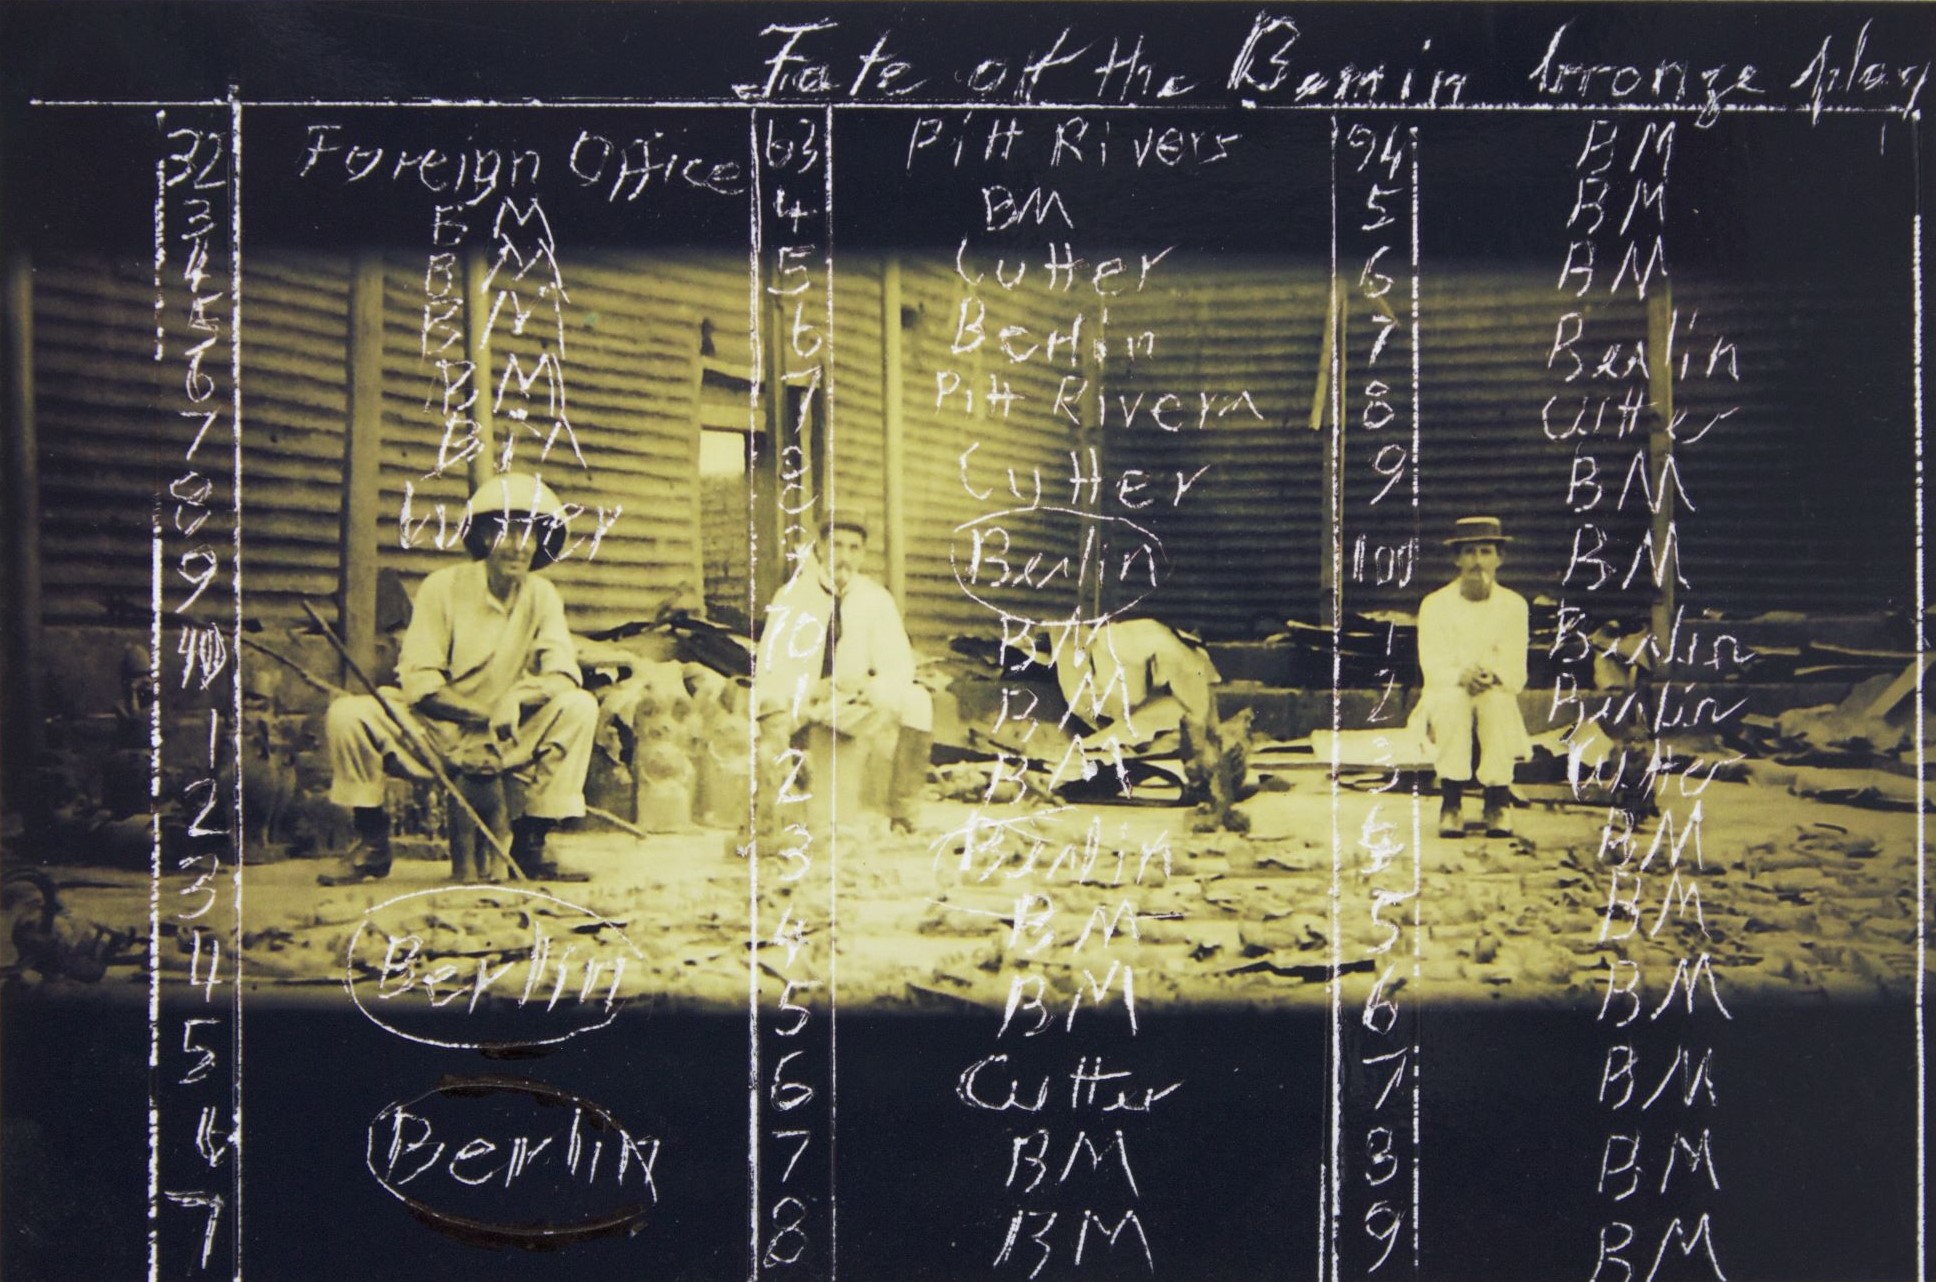 Fate of the Benin bronze plaq
32 Foreign Office 63 Pitt Rivers 94 BM
3 BM 4 BM 5 BM
4 BM 5 Cutter 6 BM
5 BM 6 Berlin 7 Berlin
6 BM 7 Pitt Rivers 8 Cutter
7 BM 8 Cutter 9 BM
8 Cutter 9 Berlin 100 BM
9 70 BM 1 Berlin
40 1 BM 2 Berlin
1 2 BM 3 Cutter
2 3 Berlin 4 BM
3 4 BM 5 BM
4 Berlin 5 BM 6 BM
5 6 Cutter 7 BM
6 Berlin 7 BM 8 BM
7 8 BM 9 BM